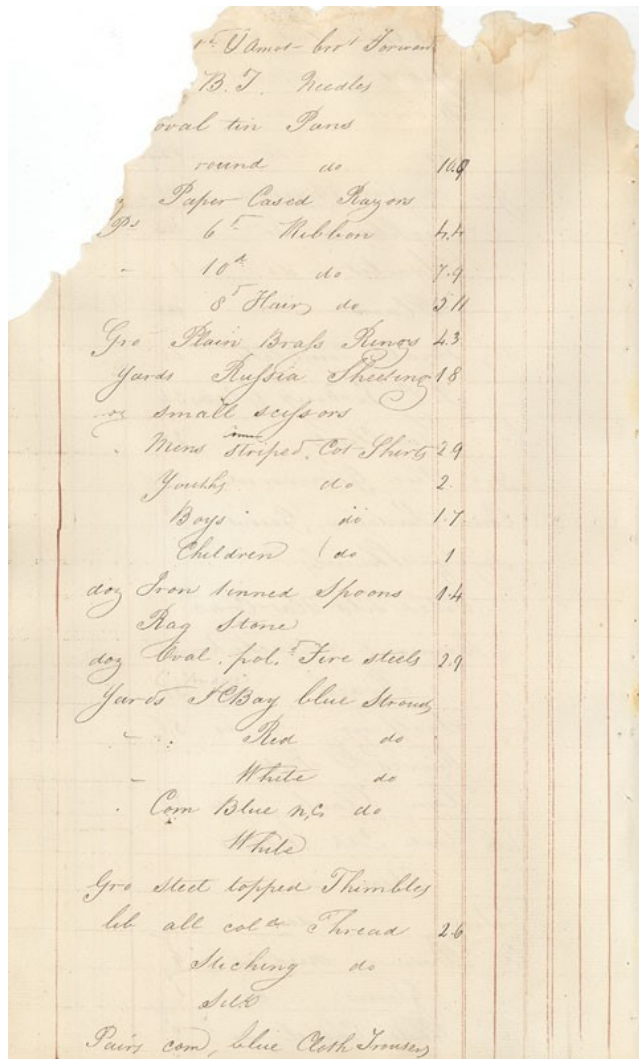 Amot bro't Forward
B. T. Needles
oval tin Pans
round do
Paper Cased Razors
Ps 6d Ribbon 4.4
" 10d do 7.9
8d Hair do 2 11
Gro Plain Brass Rings 4.3
Yards Russia Sheeting 1 8
small scissors
" Mens striped Cot Shirts 2.9
Youths do 2.
Boys do 1.7
Children do 1
doz Iron tinned Spoons 1.4
Rag Stone
doz Oval pold Fire steels 2.9
Yards HBay blue Stroud
" Red do
" White do
" Com Blue do
White
Gro steel topped Thimbles
lb all cold Thread 2.6
Stiching do
Silk
Pairs com, blue Cloth Trousers